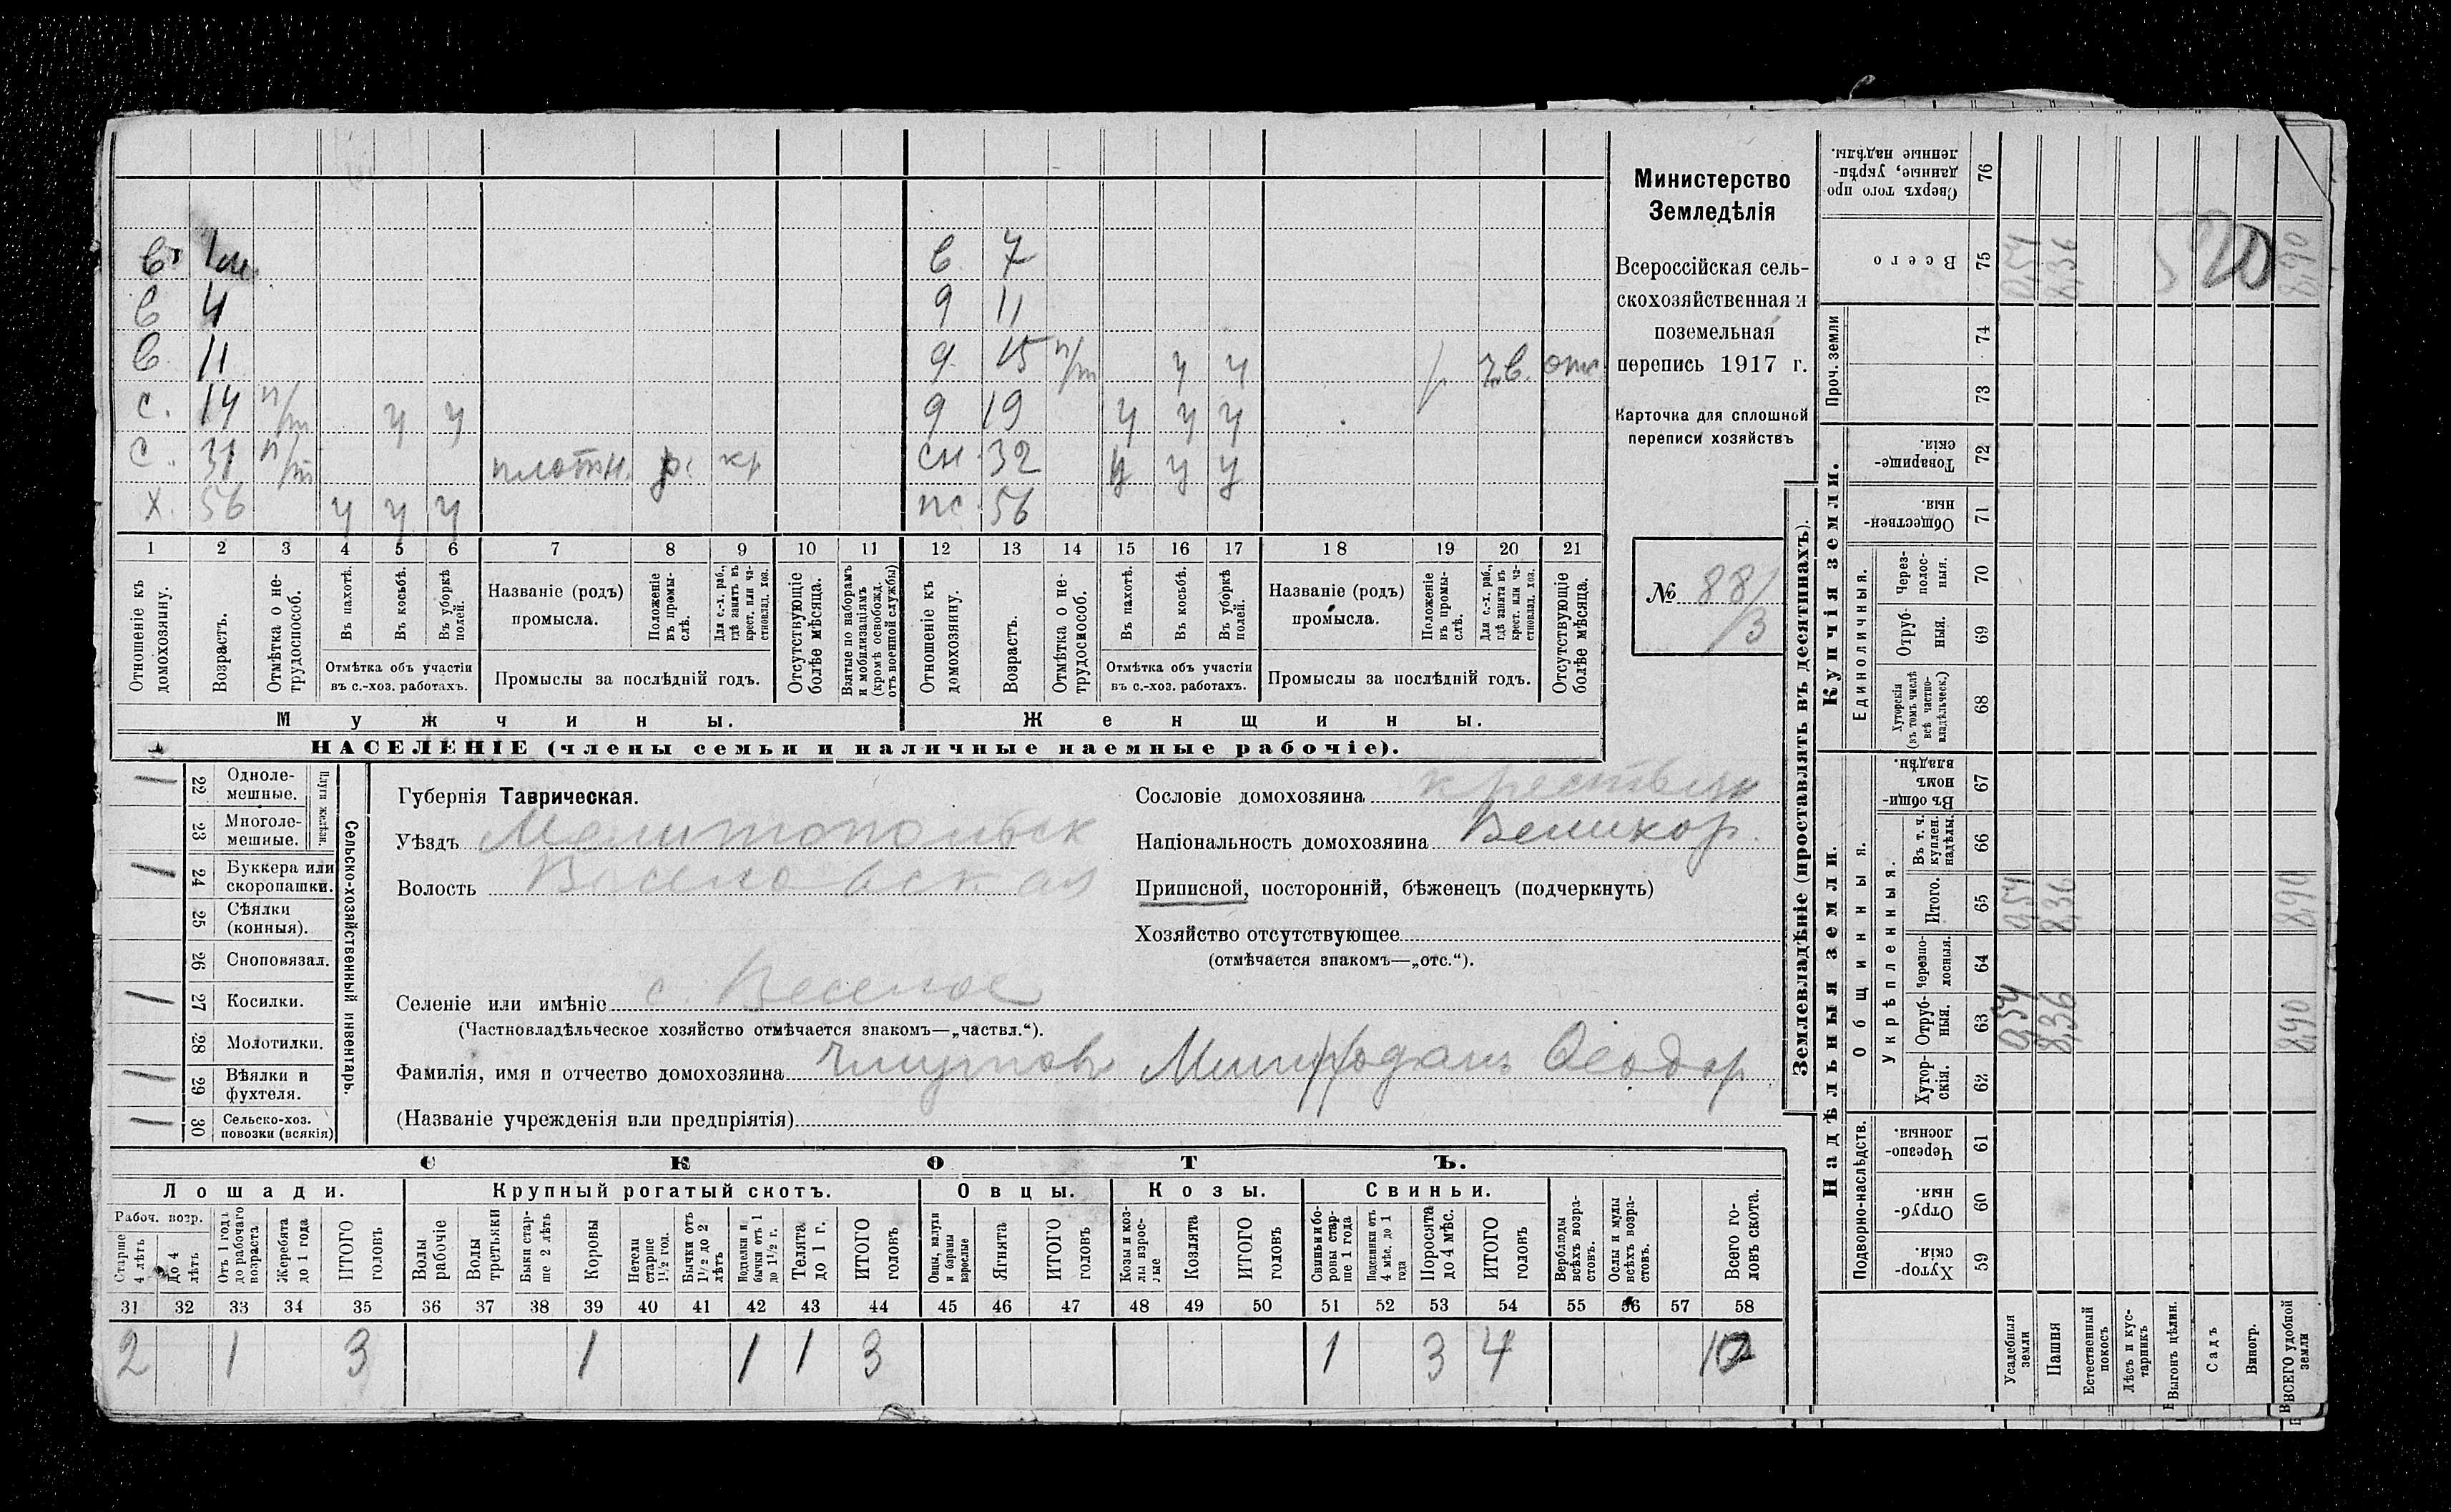 в. 1 м. в. 7
в 4 д 11
в. 11 д. 15 н/т ч ч р. ч.в. отс
с. 14 н/т ч ч д 19 ч ч ч
с. 31 н/т плотн. р. кр сн. 32 ч ч ч
х. 56 ч ч ч пс. 56
1 2 3 4 5 6 7 8 9 10 11 12 13 14 15 16 17 18 19 20 21
Отношеніе къ домохозяину.
Возрастъ.
Отмѣтка о не-трудоспособ.
Въ пахотѣ.
Въ косьбѣ.
Въ уборкѣ полей.
Отмѣтка объ участіи
въ с.-хоз. работахъ.
Названіе (родъ)
промысла.
Положеніе въ промы-слѣ.
Для с.-х. раб., гдѣ занятъ въ крест. или ча-стновлад. хоз.
Промыслы за послѣдній годъ.
Отсутствующіе болѣе мѣсяца.
Взятые по наборамъ и мобилизаціямъ (кромѣ освобожд. отъ военной службы)
Отношеніе къ домохозяину.
Возрастъ.
Отмѣтка о не-трудоспособ.
Въ пахотѣ.
Въ косьбѣ.
Въ уборкѣ полей.
Отмѣтка объ участіи
въ с.-хоз. работахъ.
Названіе (родъ)
промысла.
Положеніе въ промы-слѣ.
Для с.-х. раб., гдѣ занята въ крест. или ча-стновлад. хоз.
Промыслы за послѣдній годъ.
Отсутствующіе болѣе мѣсяца.
Мужчины. Женщины.
НАСЕЛЕНІЕ (члены семьи и наличные наемные рабочіе).
Министерство
Земледѣлія
Всероссійская сель-
скохозяйственная и
поземельная
перепись 1917 г.
Карточка для сплошной
переписи хозяйствъ
№ 88/3
Сельско-хозяйственный инвентарь.
Плуги желѣзн.
1 22 Одноле-мешные.
23 Многоле-мешные.
1 24 Буккера или скоропашки.
25 Сѣялки (конныя).
26 Сноповязал.
1 27 Косилки.
28 Молотилки.
1 29 Вѣялки и фухтеля.
1 30 Сельско-хоз. повозки (всякія)
Губернія Таврическая.
Уѣздъ Мелитопольск
Волость Веселовская
Селеніе или имѣніе с. Веселое
(Частновладѣльческое хозяйство отмѣчается знакомъ—„частвл.“).
Фамилія, имя и отчество домохозяина Митрофанъ Ѳеодор
(Названіе учрежденія или предпріятія)
Сословіе домохозяина крестьян
Національность домохозяина Великор.
Приписной, посторонній, бѣженецъ (подчеркнуть)
Хозяйство отсутствующее
(отмѣчается знакомъ—„отс.“).
СКОТЪ.
Лошади. Крупный рогатый скотъ. Овцы. Козы. Свиньи.
Рабоч. возр.
Старше 4 лѣтъ
До 4 лѣтъ
Отъ 1 года до рабочаго возраста
Жеребята до 1 года
ИТОГО головъ
Волы рабочіе
Волы третьяки
Быки стар-ше 2 лѣтъ
Коровы
Нетели старше 1½ год.
Бычки отъ 1½ до 2 лѣтъ
бычки отъ 1 до 1½ г.
Телята до 1 г.
ИТОГО головъ
Овцы, валухи и бараны взрослые
Ягнята
ИТОГО головъ
Козы и коз-лы взрос-лые
Козлята
ИТОГО головъ
Свиньи и бо-ровы стар-ше 1 года
Подсвинки отъ 4 мѣс. до 1 года
Поросята до 4 мѣс.
ИТОГО головъ
Верблюды всѣхъ возра-стовъ.
Ослы и мулы всѣхъ возра-стовъ.
Всего го-ловъ скота.
31 32 33 34 35 36 37 38 39 40 41 42 43 44 45 46 47 48 49 50 51 52 53 54 55 56 57 58
2 1 3 1 1 1 3 1 3 4 10
Землевладѣніе (проставлять въ десятинахъ).
Надѣльныя земли. Купчія земли.
Подворно-наслѣдств.
Общинныя.
Укрѣпленныя.
Единоличныя.
Проч. земли
59 Хутор-скія.
60 Отруб-ныя.
61 Черезпо-лосныя.
62 Хутор-скія.
63 Отруб-ныя.
64 Черезпо-лосныя.
65 Итого.
66 Въ т. ч. куплен. надѣлы.
67 Въ общи-номъ владѣн.
68 Хуторскія (въ томъ числѣ всѣ частно-владѣльческ.)
69 Отруб-ныя.
70 Через-полос-ныя.
71 Обществен-ныя.
72 Товарище-скія.
73
74
75 Всего
76 Сверхъ того про данные, укрѣп-ленные надѣлы.
Усадебныя земли 0,54 0,54 0,54
Пашня 8,36 8,36 8,36
Естественный покосъ
Лѣсъ и кус-тарникъ
Выгонъ цѣлин.
Садъ
Виногр.
ВСЕГО удобной земли 8,90 8,90 8,90
520